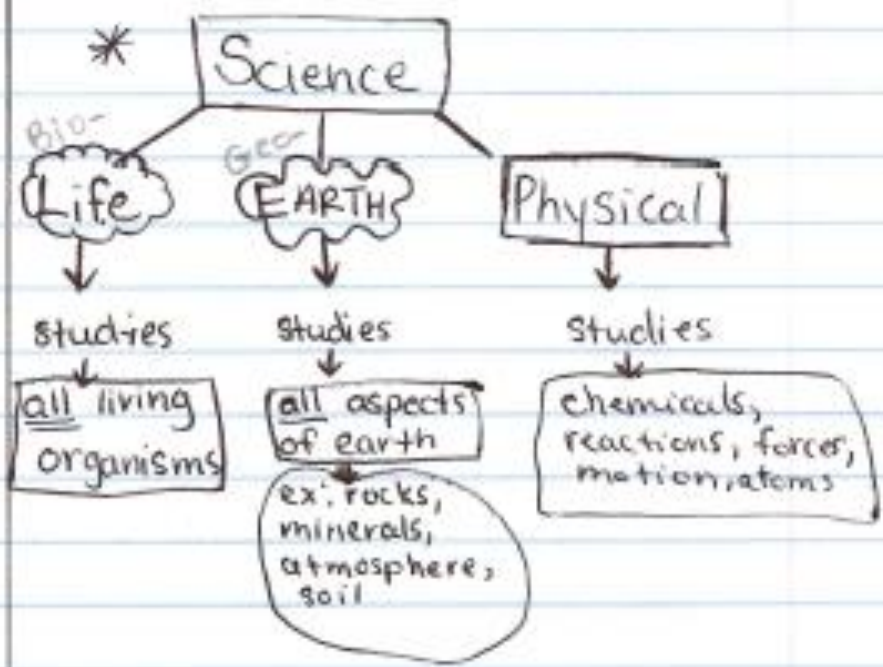 *
Science
Bio-
Life
Geo-
EARTH
Physical
studies
studies
studies
all living
organisms
all aspects
of earth
ex: rocks,
minerals,
atmosphere,
soil
chemicals,
reactions, forces,
motion, atoms